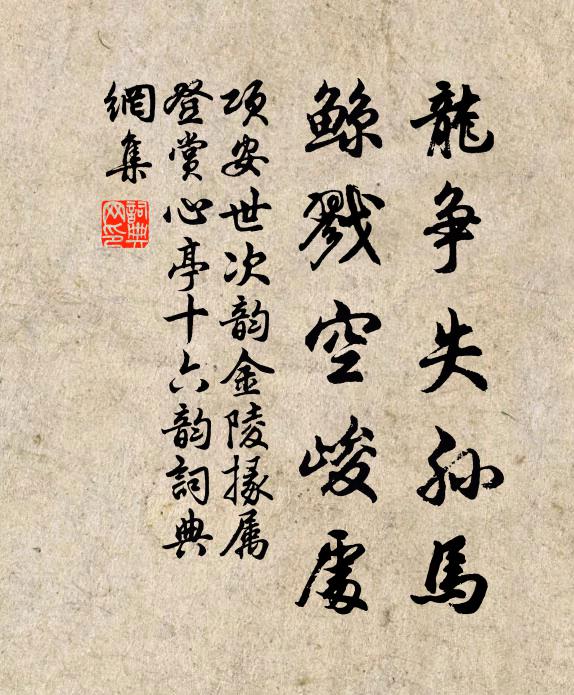 龍争失孙馬
鲸戮空峻處
项安世次韵金陵掾属
登赏心亭十六韵詞典
網集
詞典
网印